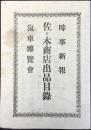 時事新報
佐々木商店出品目録
汽車博覽會